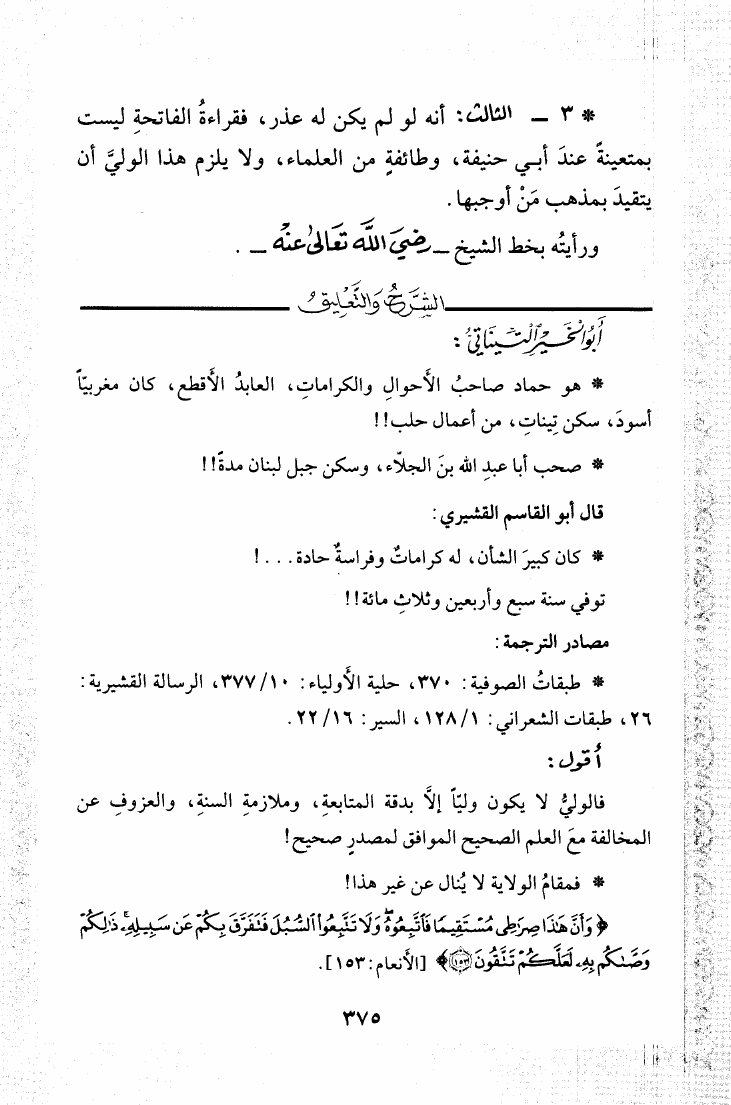 * ٣ ــ الثالث: أنه لو لم يكن له عذر، فقراءةُ الفاتحةِ ليست
بمتعينةً عندَ أبـي حنيفة، وطائفةٍ من العلماء، ولا يلزم هذا الوليَّ أن
يتقيدَ بمذهب مَنْ أوجبها.
ورأيتُه بخط الشيخ ــ رَضِيَ اللَّه تَعَالىٰ عَنْهُ ــ .
الشَّرْحُ وَالتَّعْلِيقُ
أَبُو الْخَيْرِ التِّينَاتِيُّ:
* هو حماد صاحبُ الأحوالِ والكراماتِ، العابدُ الأقطع، كان مغربيّاً
أسودَ، سكن تِيناتِ، من أعمال حلب!!
* صحب أبا عبدِ الله بنَ الجلّاء، وسكن جبل لبنان مدةً!!
قال أبو القاسم القشيري:
* كان كبيرَ الشأن، له كراماتٌ وفراسةٌ حادة. . . !
توفي سنة سبع وأربعين وثلاثِ مائة!!
مصادر الترجمة:
* طبقاتُ الصوفية: ٣٧٠، حلية الأولياء: ١٠/٣٧٧، الرسالة القشيرية:
٢٦، طبقات الشعراني: ١/١٢٨، السير: ١٦/٢٢.
أقول:
فالوليُّ لا يكون وليّاً إلاَّ بدقة المتابعةِ، وملازمةِ السنةِ، والعزوفِ عن
المخالفة معَ العلم الصحيح الموافق لمصدرٍ صحيح!
* فمقامُ الولاية لا يُنال عن غير هذا!
﴿ وَأَنَّ هَٰذَا صِرَٰطِى مُسْتَقِيمًا فَٱتَّبِعُوهُ ۖ وَلَا تَتَّبِعُوا۟ ٱلسُّبُلَ فَتَفَرَّقَ بِكُمْ عَن سَبِيلِهِۦ ۚ ذَٰلِكُمْ
وَصَّىٰكُم بِهِۦ لَعَلَّكُمْ تَتَّقُونَ ١٥٣﴾ [الأنعام: ١٥٣].
٣٧٥